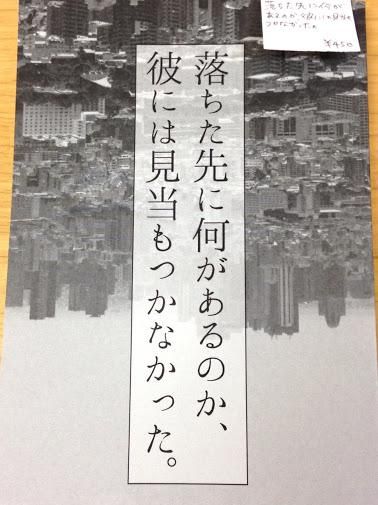 落ちた先に何があるのか、
彼には見当もつかなかった。
落ちた先に何が
あるのか彼には見当も
つかなかった。
¥450